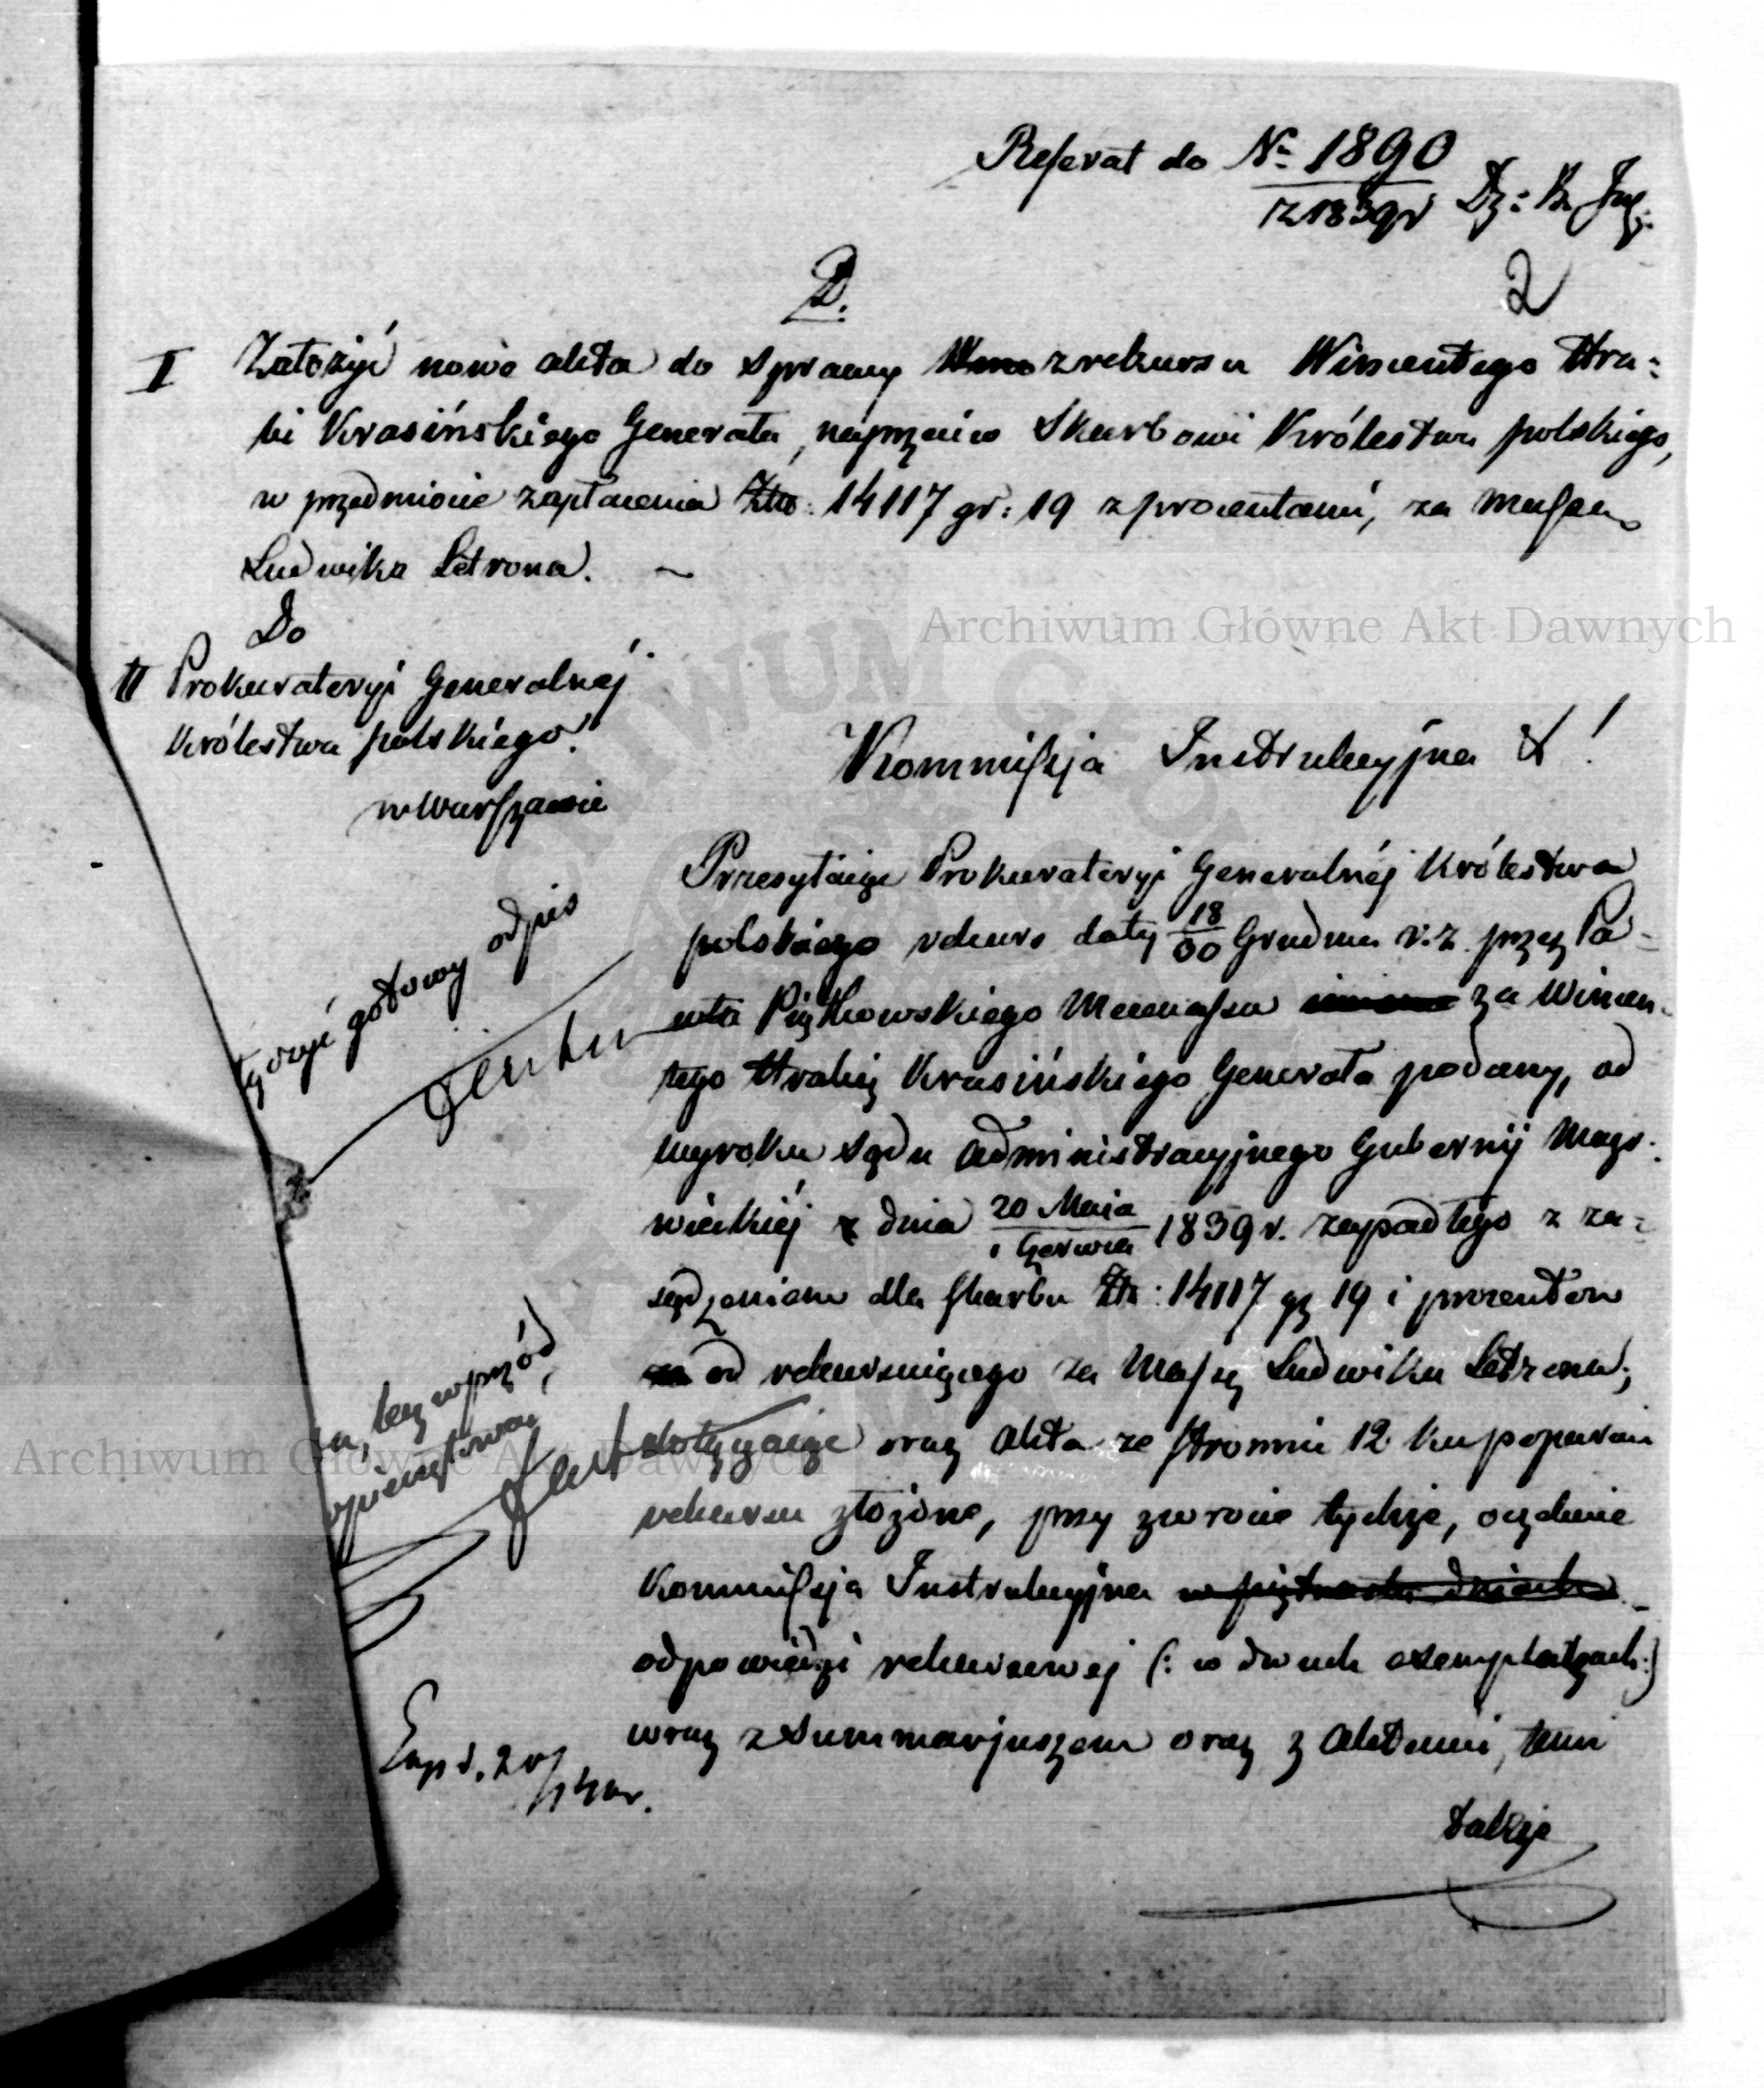 Referat do Nº 1890
z 1839 r Dz: K. Ins:
2
D.
I Założyć nowe akta do sprawy z rekursu Wincentego Hra:
bi Krasińskiego Generała, naprzeciw Skarbowi Królestwa polskiego,
w przedmiocie zapłacenia Złp: 14117 gr: 19 z procentami, za massę
Ludwika Letrona. ~
Do
II Prokuratoryi Generalnéj
Królestwa polskiego.
w Warszawie
Kommissyja Instrukcyjna &!
Przesyłaiąc Prokuratoryi Generalnéj Królestwa
polskiego rekurs daty 18/30 Grudnia r. z. przez Pa-
wła Piątkowskiego Mecenassa za Wincen-
tego Hrabię Krasińskiego Generała podany, od
wyroku Sądu Administracyjnego Gubernij Mazo-
wieckiéj z dnia 20 Maja / 1 Czerwca 1839 r. zapadłego z za-
sądzeniem dla skarbu Złp: 14117 gr 19 i procentow
od rekursuiącego za Massę Ludwika Letrona;
dotyczące oraz Akta ze stronnic 12 ku poparciu
rekursu złożone, przy zwrocie tychże, oczekuie
Kommissyja Instrukcyjna w piętnastu dniach
odpowiedzi rekursowej (: w dwuch exemplarzach:)
wraz z Summarjuszem oraz z Aktami, temi
także
gotowy odpis
lecz wprzód
Exp d. 20/1 40 r.
Archiwum Główne Akt Dawnych
Archiwum Główne Akt Dawnych